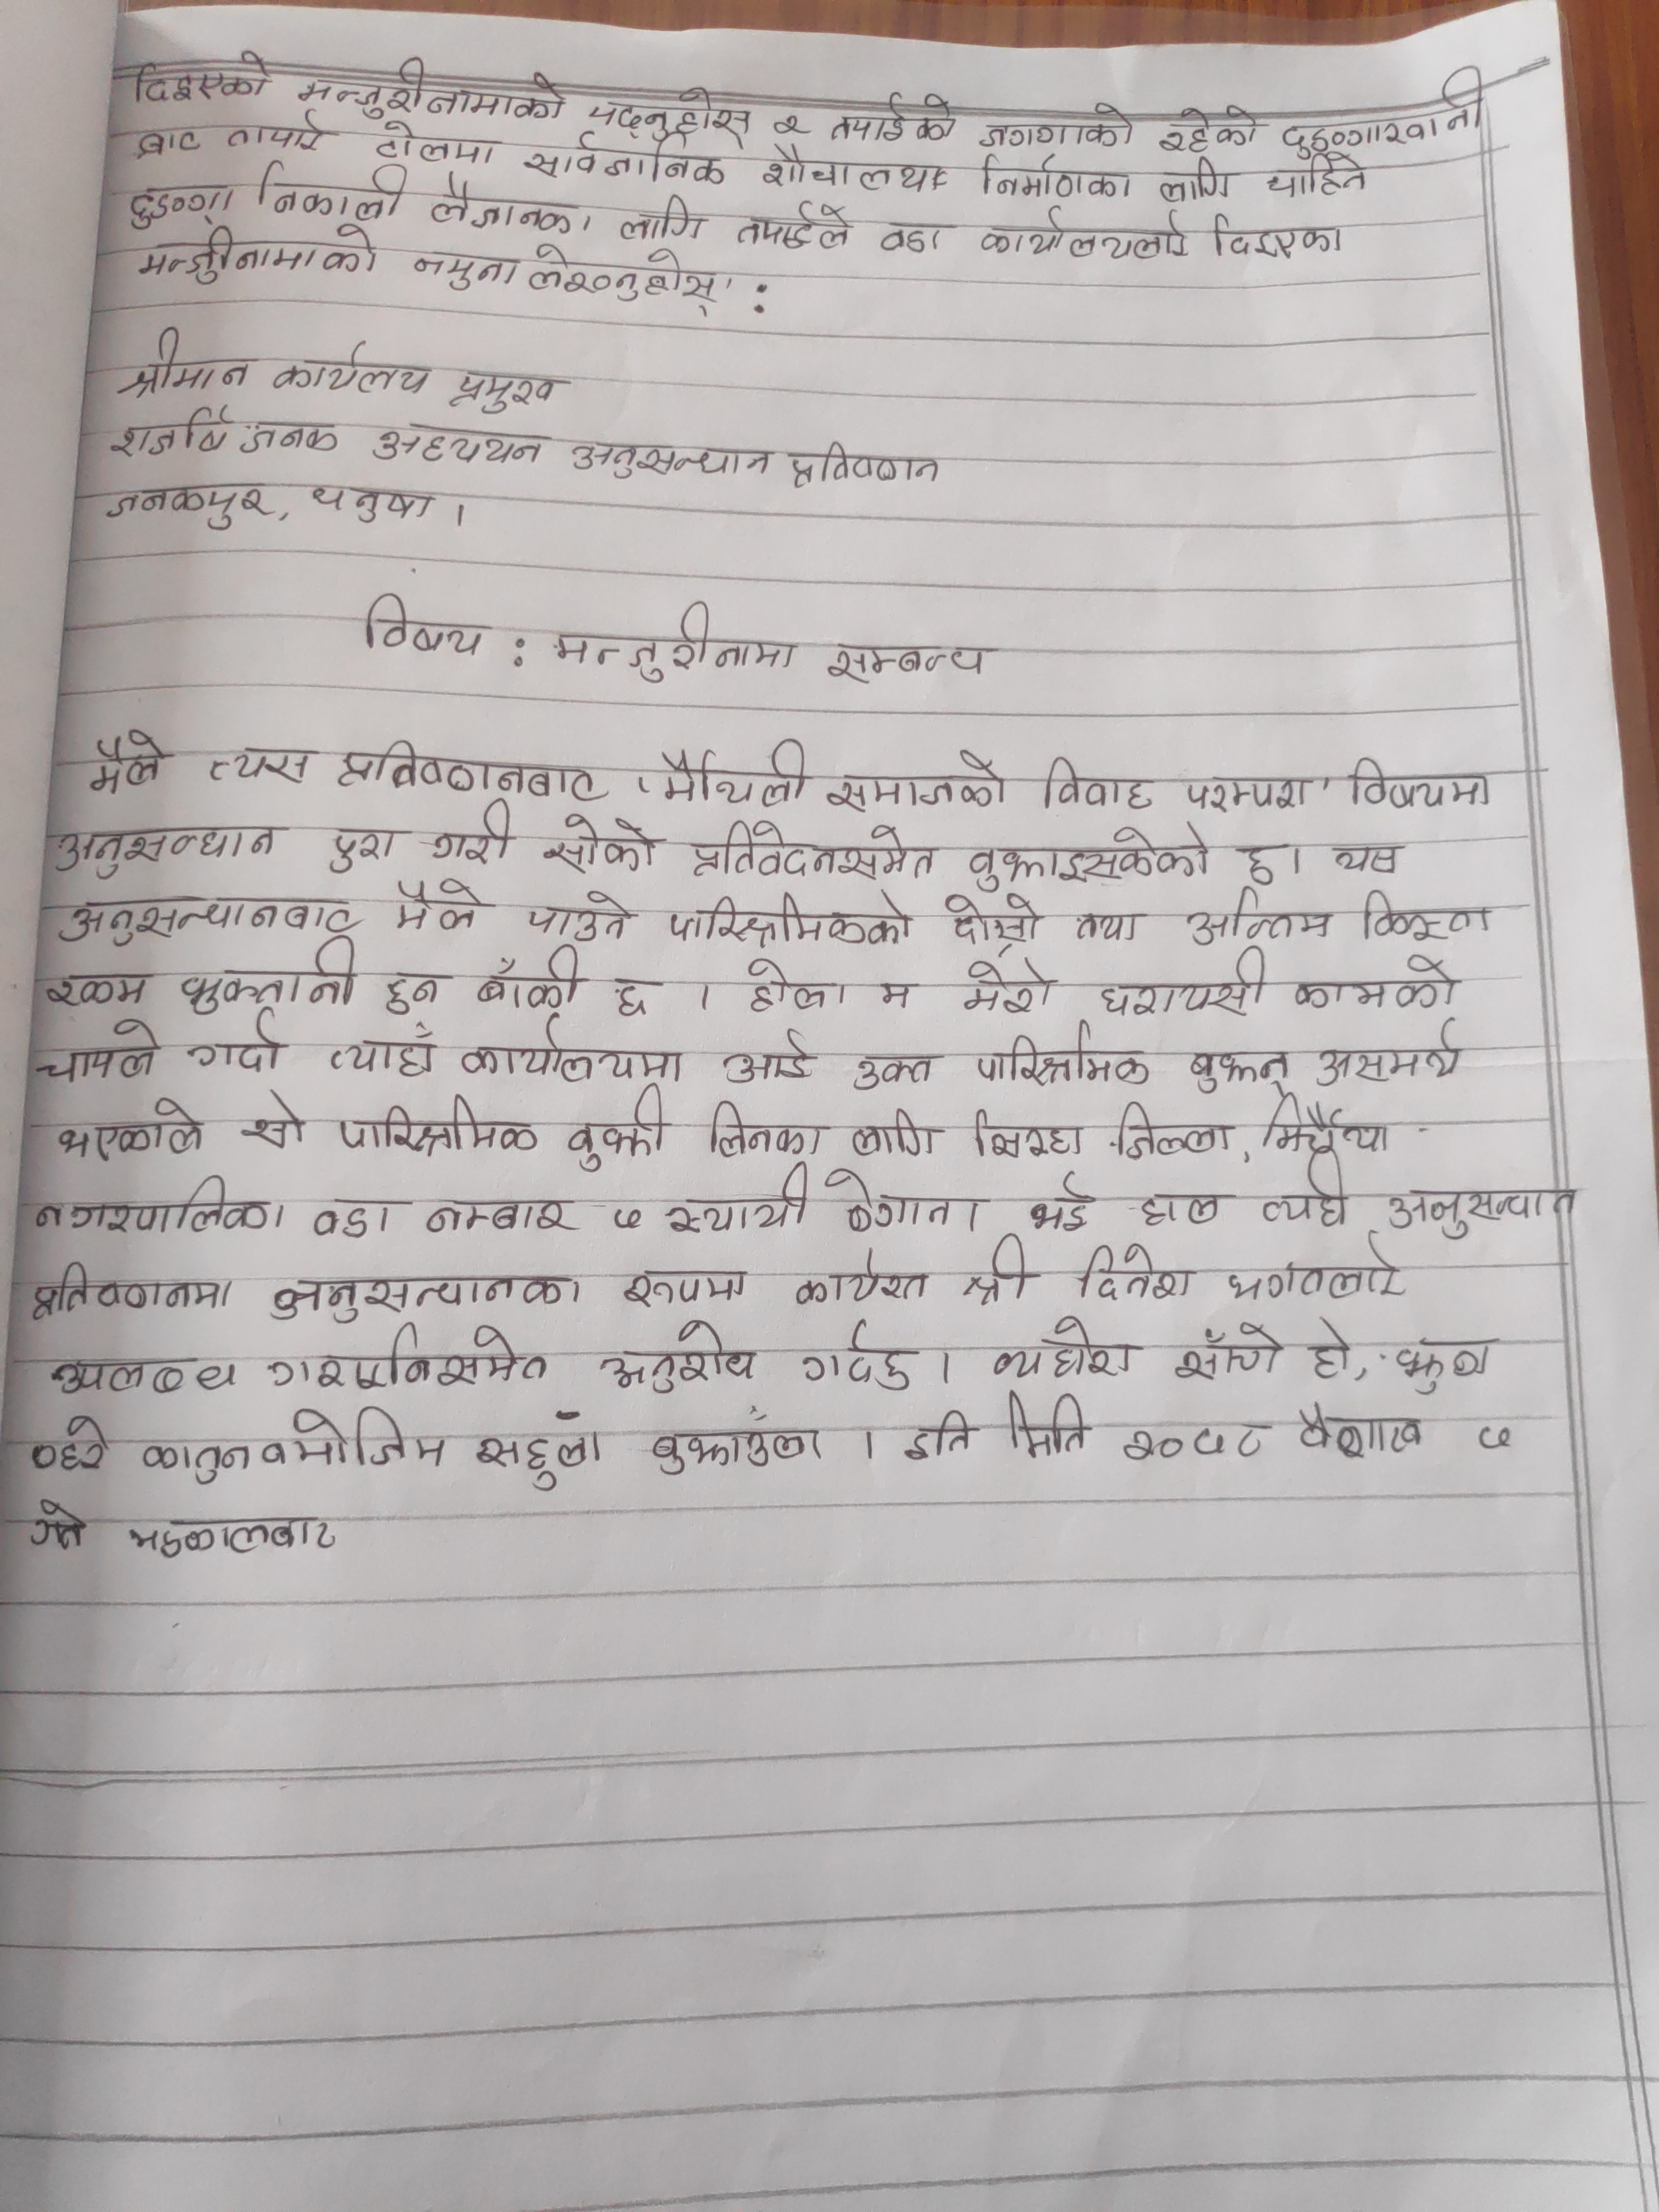 दिइएको मन्जुरीनामाको पढ्नुहोस् र तपाईको जगगाको रहेको ढुङ्गाखानी
बाट तपाई टोलमा सार्वजानिक शौचालय निर्माणका लागि चाहिने
ढुङ्गा निकाली लैजानका लागि तपाईले वडा कार्यालयलाई दिइएका
मन्जुरीनामाको नमुना लेख्नुहोस् :
श्रीमान कार्यलय प्रमुख
राजर्षि जनक अध्ययन अनुसन्धान प्रतिष्ठान
जनकपुर, धनुषा ।
विषय : मन्जुरीनामा सम्बन्ध
मैले त्यस प्रतिष्ठानबाट 'मैथिली समाजको विवाह परम्परा' विषयमा
अनुसन्धान पुरा गरी सोको प्रतिवेदनसमेत बुझाइसकेको छु। यस
अनुसन्धानबाट मैले पाउने पारिश्रमिकको दोस्रो तथा अन्तिम किस्ता
रकम भुक्तानी हुन बाँकी छ । होला म मेरो घरायसी कामको
चापले गर्दा त्याहाँ कार्यालयमा आई उक्त पारिश्रमिक बुझ्न असमर्थ
भएकाले सो पारिश्रमिक बुझी लिनका लागि सिरहा जिल्ला, मिर्चैया
नगरपालिका वडा नम्बार ५ स्थायी ठेगाना भई हाल त्यही अनुसन्धान
प्रतिष्ठानमा अनुसन्धानका रूपमा कार्यरत श्री दिनेश भगतलाई
उपलब्ध गराइनसमेत अनुरोध गर्दछु । व्यहोरा साँचो हो, झुठा
ठहरे कानुनबमोजिम सहुँला बुझाउँला । इति मिति २०७८ वैशाख ५
गते मङ्कालबार